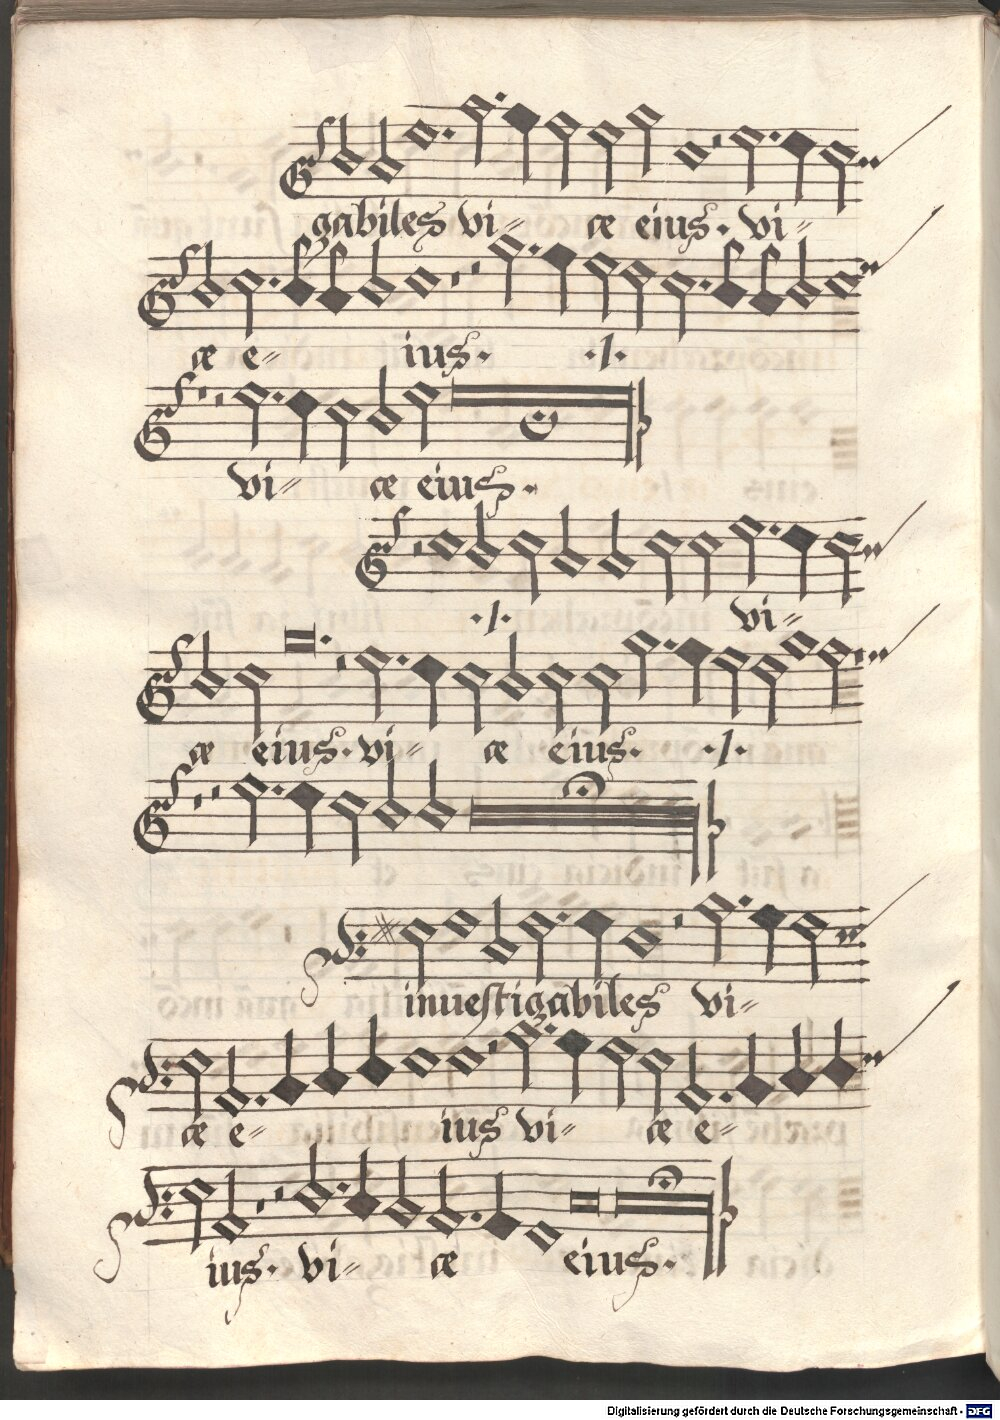 gabiles vi= æ eius. vi=
æ e= ius. ./.
vi= æ eius.
./. vi=
æ eius. vi= æ eius. ./.
inuestigabiles vi=
æ e= ius vi= æ e=
ius. vi= æ eius.
Digitalisierung gefördert durch die Deutsche Forschungsgemeinschaft - DFG